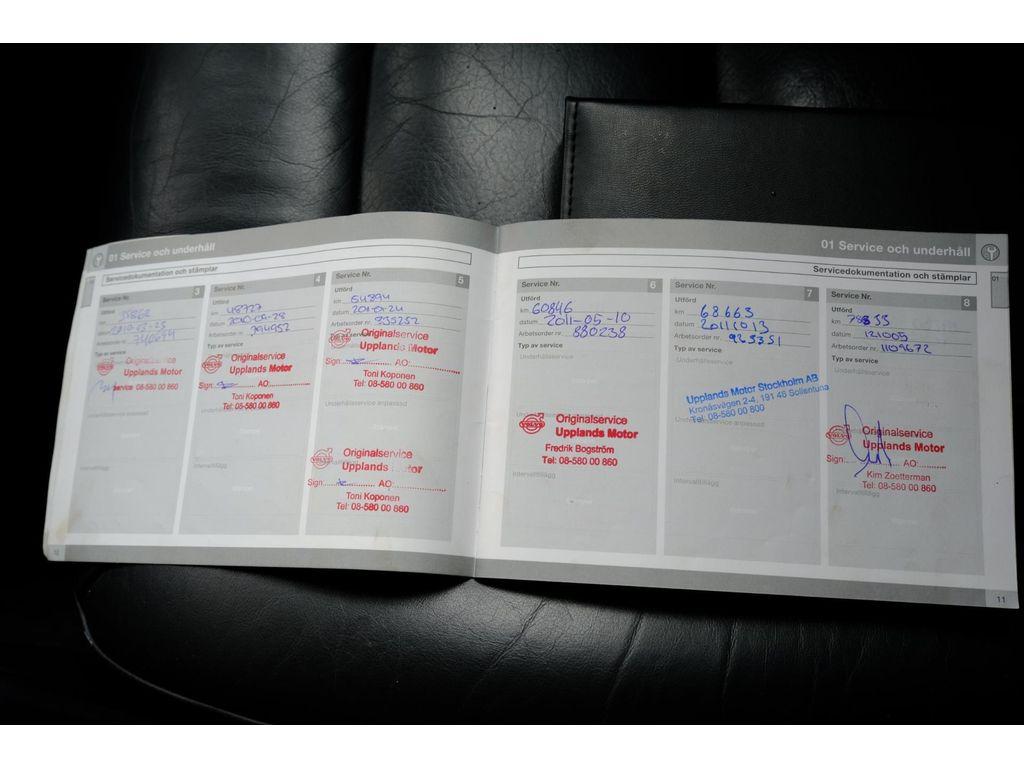 01 Service och underhåll
Servicedokumentation och stämplar
Service Nr. 3
Utförd
km
datum
Arbetsorder nr.
Typ av service
Originalservice
Upplands Motor
service 08-580 00 860
Underhållsservice anpassad
Service Nr. 4
Utförd
km 48727
datum
Arbetsorder nr. 794952
Typ av service
Originalservice
Upplands Motor
Sign: AO:
Toni Koponen
Tel: 08-580 00 860
Service Nr. 5
Utförd
km
datum
Arbetsorder nr. 835252
Originalservice
Upplands Motor
Sign: AO:
Toni Koponen
Tel: 08-580 00 860
Underhållsservice anpassad
Originalservice
Upplands Motor
Sign: AO:
Toni Koponen
Tel: 08-580 00 860
01 Service och underhåll
Servicedokumentation och stämplar
01
Service Nr. 6
Utförd
km 60846
datum 2011-05-10
Arbetsorder nr. 880238
Typ av service
Underhållsservice
Originalservice
Upplands Motor
Fredrik Bogström
Tel: 08-580 00 860
Intervalltillägg
Service Nr. 7
Utförd
km 68.663
datum 20111013
Arbetsorder nr. 923351
Typ av service
Underhållsservice
Upplands Motor Stockholm AB
Kronåsvägen 2-4, 191 46 Sollentuna
Tel: 08-580 00 800
Underhållsservice anpassad
Intervalltillägg
Service Nr. 8
Utförd
km 78833
datum 121005
Arbetsorder nr. 1109672
Typ av service
Underhållsservice
Originalservice
Upplands Motor
Sign: AO:
Kim Zoetterman
Tel: 08-580 00 860
Intervalltillägg
11